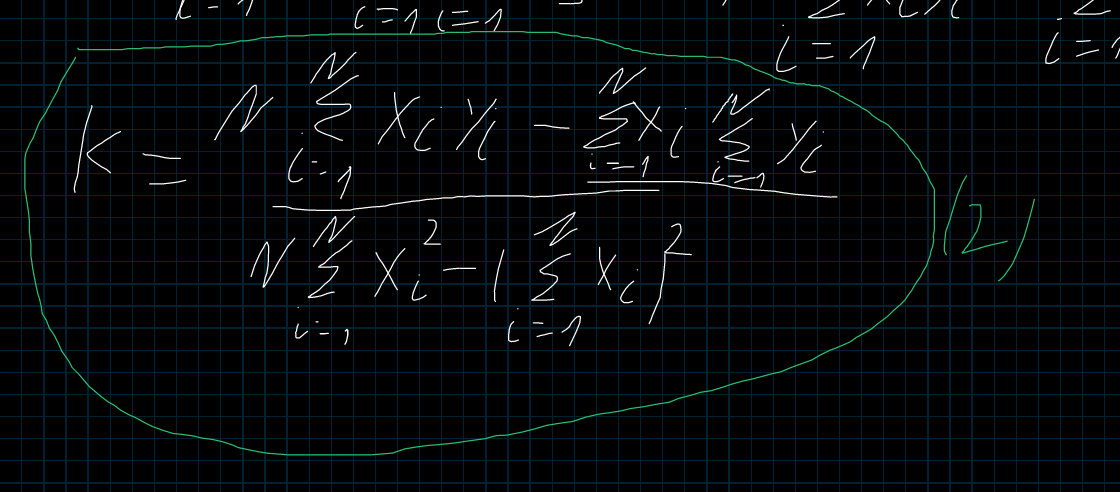 i=1 i=1 i=1 i=1
K = \frac{N \sum_{i=1}^{N} x_i y_i - \sum_{i=1}^{N} x_i \sum_{i=1}^{N} y_i}{N \sum_{i=1}^{N} x_i^2 - (\sum_{i=1}^{N} x_i)^2} (2)